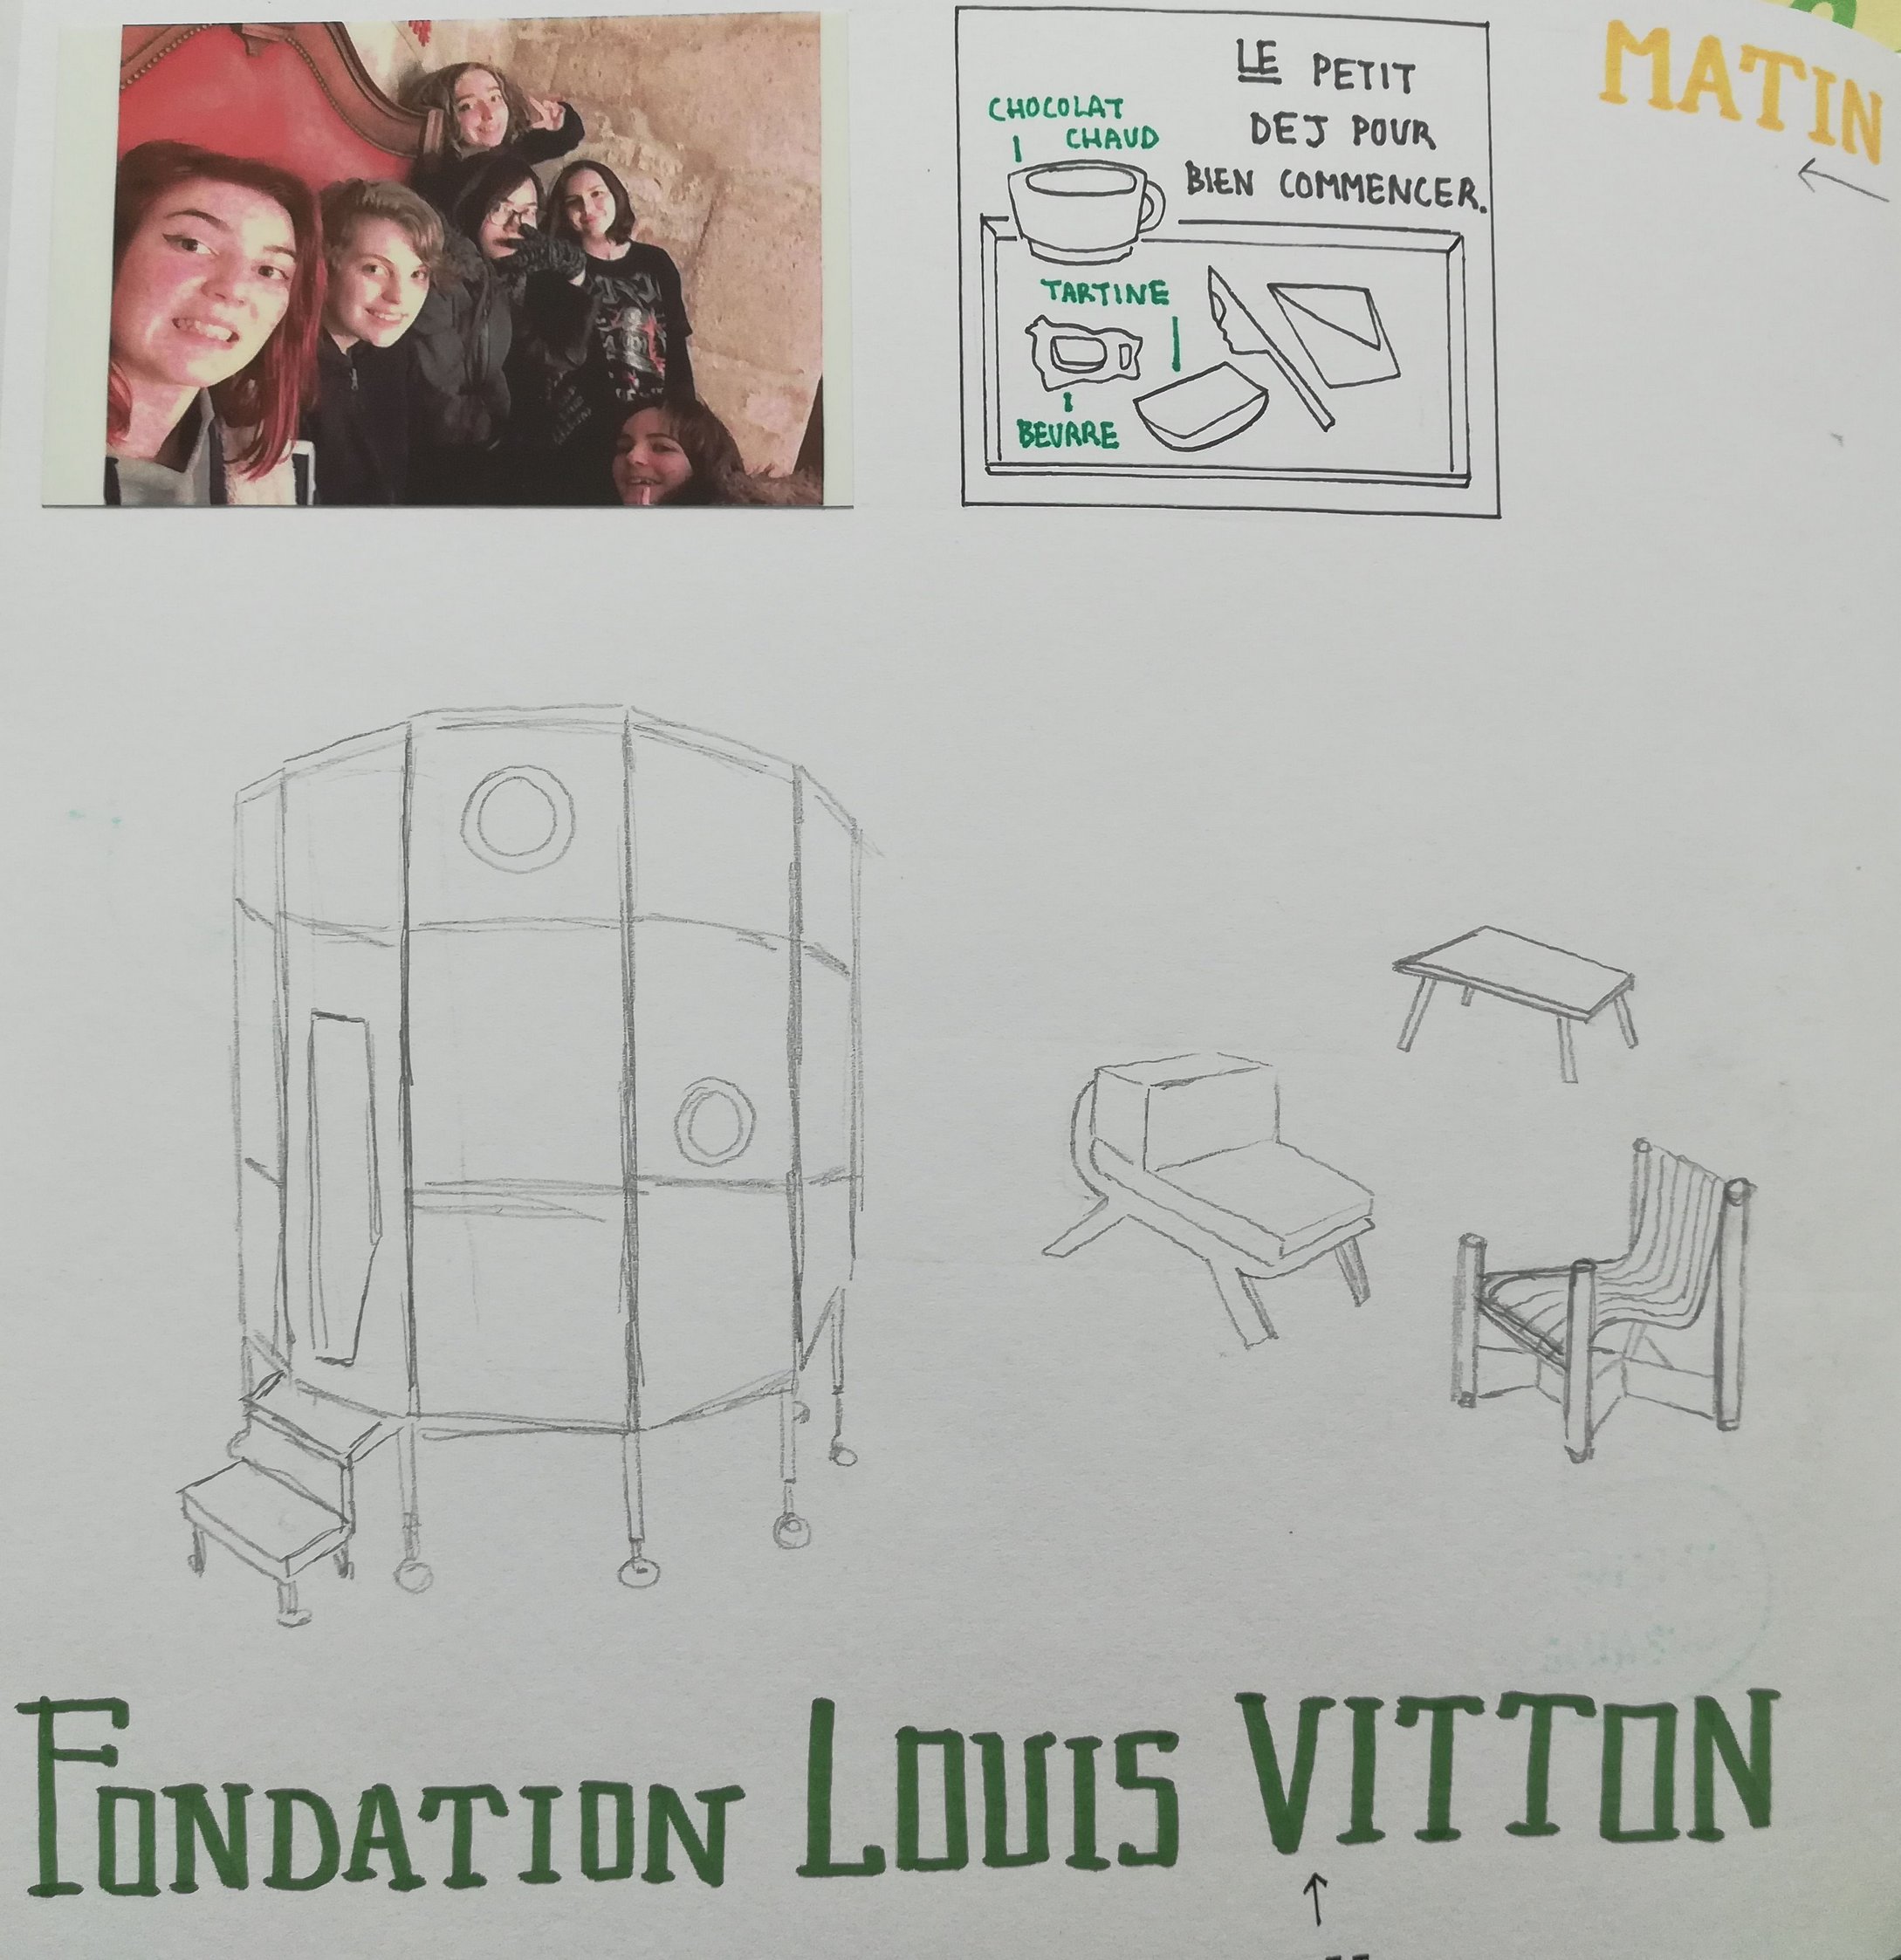 LE PETIT
DEJ POUR
BIEN COMMENCER.
CHOCOLAT
CHAUD
TARTINE
BEURRE
MATIN
FONDATION LOUIS VITTON